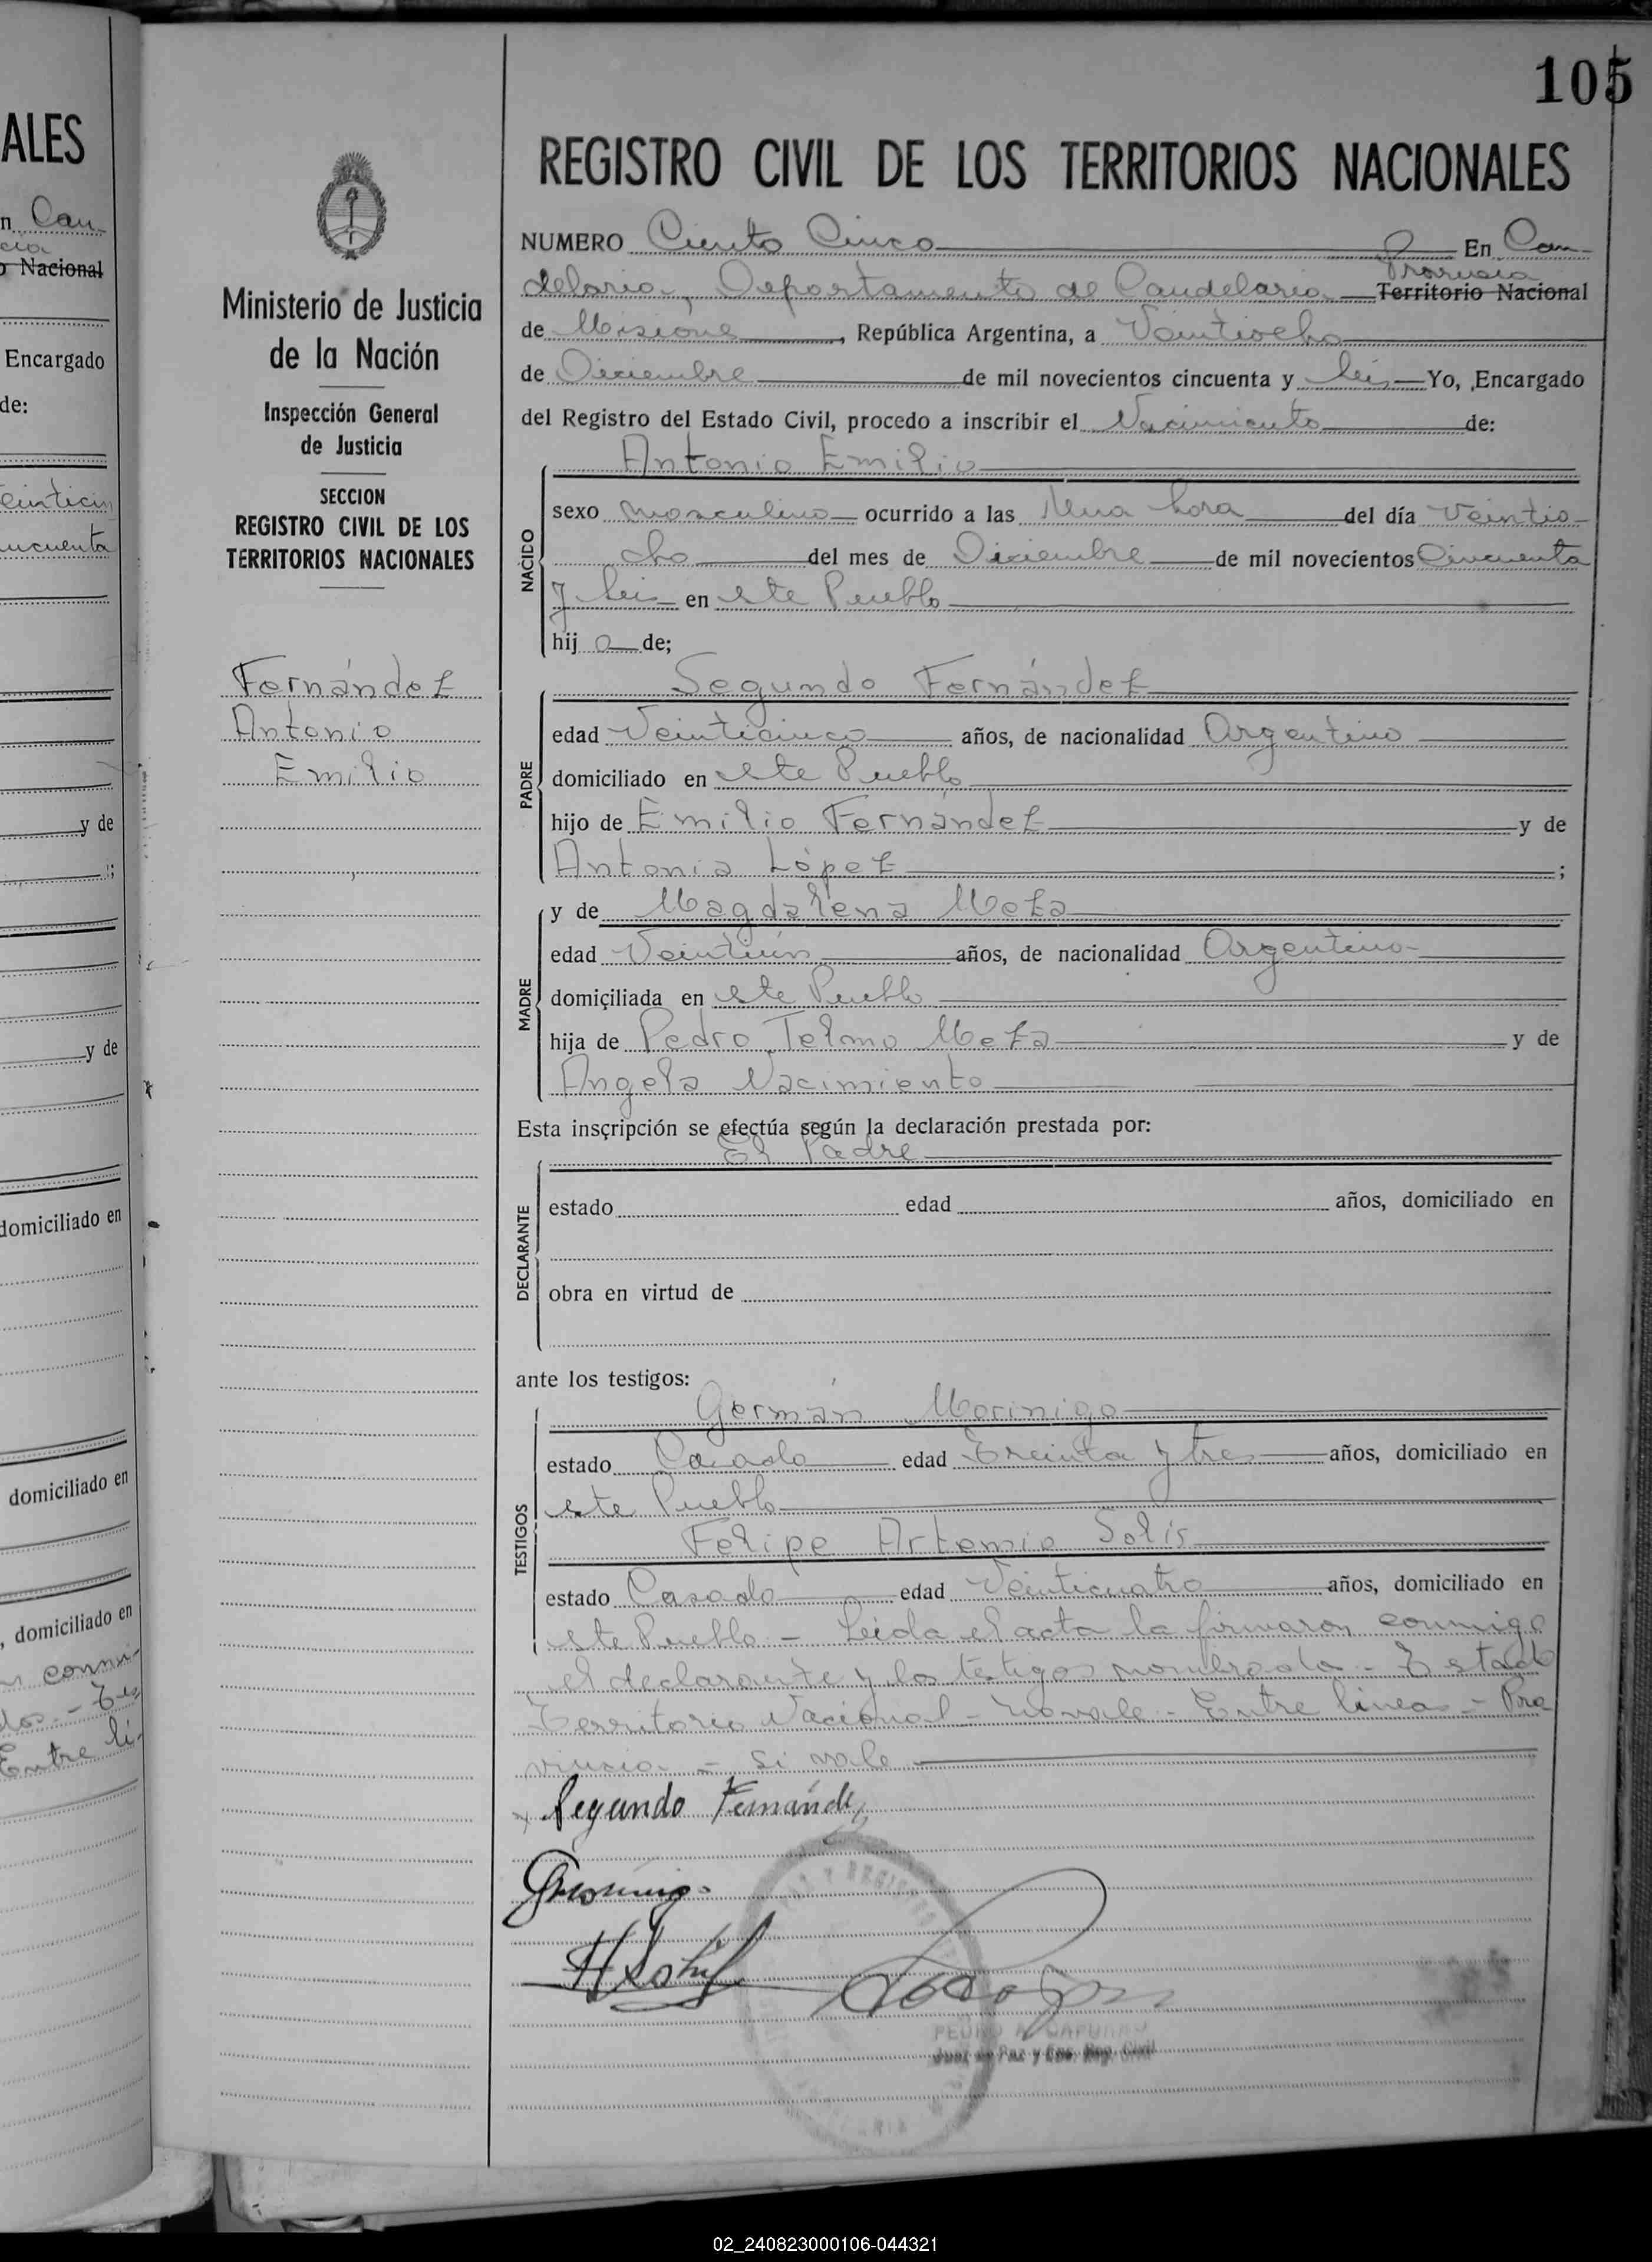 105
ALES
n Can-
cia
o Nacional
Encargado
de:
einticin
ncuenta
y de
;
y de
domiciliado en
domiciliado en
, domiciliado en
n conmi-
dos.- Es
Entre lí-
Ministerio de Justicia
de la Nación
Inspección General
de Justicia
SECCION
REGISTRO CIVIL DE LOS
TERRITORIOS NACIONALES
Fernández
Antonio
Emilio
REGISTRO CIVIL DE LOS TERRITORIOS NACIONALES
NUMERO Ciento Cinco En Can-
Provincia
delaria, Departamento de Candelaria Territorio Nacional
de Misiones, República Argentina, a Veintiocho
de Diciembre de mil novecientos cincuenta y seis Yo, Encargado
del Registro del Estado Civil, procedo a inscribir el Nacimiento de:
Antonio Emilio
NACIDO
sexo masculino ocurrido a las Una hora del día veintio-
cho del mes de Diciembre de mil novecientos Cincuenta
y seis en este Pueblo
hij o de;
Segundo Fernández
PADRE
edad Veinticinco años, de nacionalidad Argentino
domiciliado en este Pueblo
hijo de Emilio Fernández y de
Antonia López ;
y de Magdalena Meza
MADRE
edad Veintiún años, de nacionalidad Argentina
domiciliada en este Pueblo
hija de Pedro Telmo Meza y de
Angela Nacimiento
Esta inscripción se efectúa según la declaración prestada por:
El Padre
DECLARANTE
estado edad años, domiciliado en
obra en virtud de
ante los testigos:
Germán Morinigo
TESTIGOS
estado Casado edad Treinta y tres años, domiciliado en
este Pueblo
Felipe Artemio Solís
estado Casado edad Veinticuatro años, domiciliado en
este Pueblo - Leída el acta la firmaron conmigo
el declarante y los testigos nombrados - Testado
Territorio Nacional - no vale - Entre lineas - Pro-
vincia - Si vale
Segundo Fernández
PEDRO A. CAPURRO
Juez de Paz y Enc. Reg. Civil
02_240823000106-044321